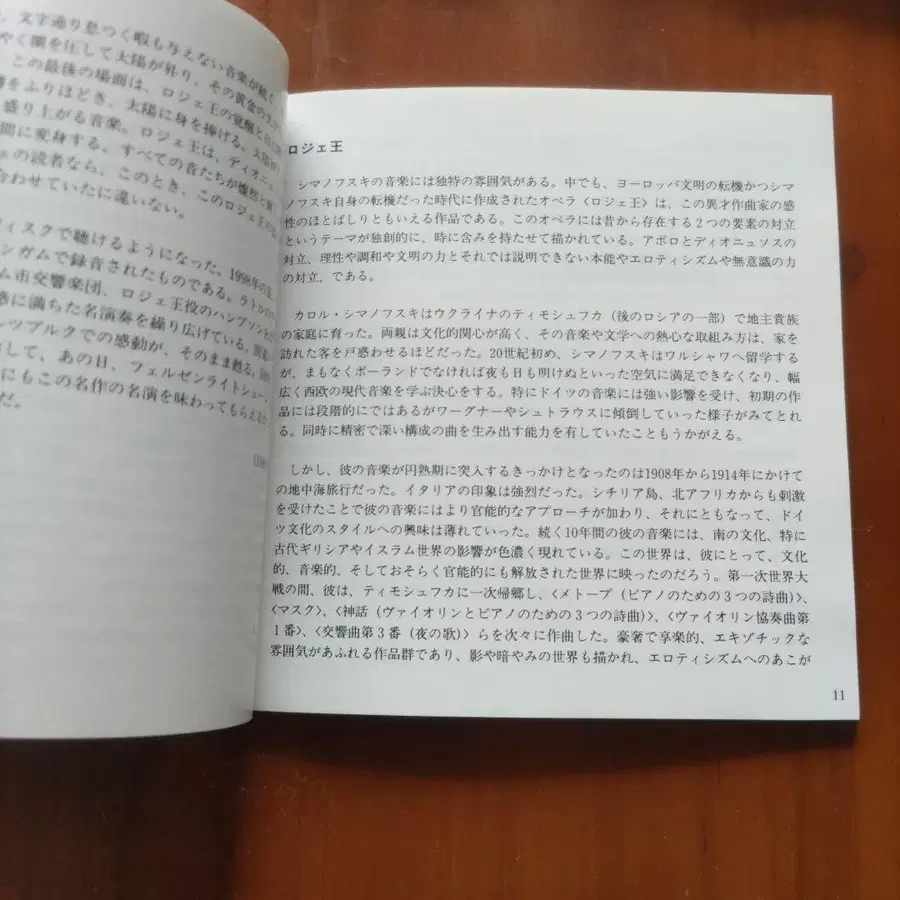 、文字通り息つく暇も与えない音楽が続く
やく闇を圧して太陽が昇り、その黄金の
この最後の場面は、ロジェ王の覚醒と
をふりほどき、太陽に身を捧げる。太陽が
盛り上がる音楽。ロジェ王は、ディオニュ
間に変身する。すべての音たちが燦然と
の読者なら、このとき、このロジェ王が
合わせていたに違いない。
ィスクで聴けるようになった。1998年の
ンガムで録音されたものである。ラトル
ム市交響楽団、ロジェ王役のハンプソンを
感に満ちた名演奏を繰り広げている。
ツブルクでの感動が、そのまま甦る。
して、あの日、フェルゼンライトシューレ
にもこの名作の名演を味わってもらえる
だ。
ロジェ王
シマノフスキの音楽には独特の雰囲気がある。中でも、ヨーロッパ文明の転機かつシマ
ノフスキ自身の転機だった時代に作成されたオペラ〈ロジェ王〉は、この異才作曲家の感
性のほとばしりともいえる作品である。このオペラには昔から存在する2つの要素の対立
というテーマが独創的に、時に含みを持たせて描かれている。アポロとディオニュソスの
対立、理性や調和や文明の力とそれでは説明できない本能やエロティシズムや無意識の力
の対立、である。
カロル・シマノフスキはウクライナのティモシュフカ（後のロシアの一部）で地主貴族
の家庭に育った。両親は文化的関心が高く、その音楽や文学への熱心な取組み方は、家を
訪れた客を戸惑わせるほどだった。20世紀初め、シマノフスキはワルシャワへ留学する
が、まもなくポーランドでなければ夜も日も明けぬといった空気に満足できなくなり、幅
広く西欧の現代音楽を学ぶ決心をする。特にドイツの音楽には強い影響を受け、初期の作
品には段階的にではあるがワーグナーやシュトラウスに傾倒していった様子がみてとれ
る。同時に精密で深い構成の曲を生み出す能力を有していたこともうかがえる。
しかし、彼の音楽が円熟期に突入するきっかけとなったのは1908年から1914年にかけて
の地中海旅行だった。イタリアの印象は強烈だった。シチリア島、北アフリカからも刺激
を受けたことで彼の音楽にはより官能的なアプローチが加わり、それにともなって、ドイ
ツ文化のスタイルへの興味は薄れていった。続く10年間の彼の音楽には、南の文化、特に
古代ギリシアやイスラム世界の影響が色濃く現れている。この世界は、彼にとって、文化
的、音楽的、そしておそらく官能的にも解放された世界に映ったのだろう。第一次世界大
戦の間、彼は、ティモシュフカに一次帰郷し、〈メトープ（ピアノのための3つの詩曲）〉、
〈マスク〉、〈神話（ヴァイオリンとピアノのための3つの詩曲）〉、〈ヴァイオリン協奏曲第
1番〉、〈交響曲第3番（夜の歌）〉らを次々に作曲した。豪奢で享楽的、エキゾチックな
雰囲気があふれる作品群であり、影や暗やみの世界も描かれ、エロティシズムへのあこが
11